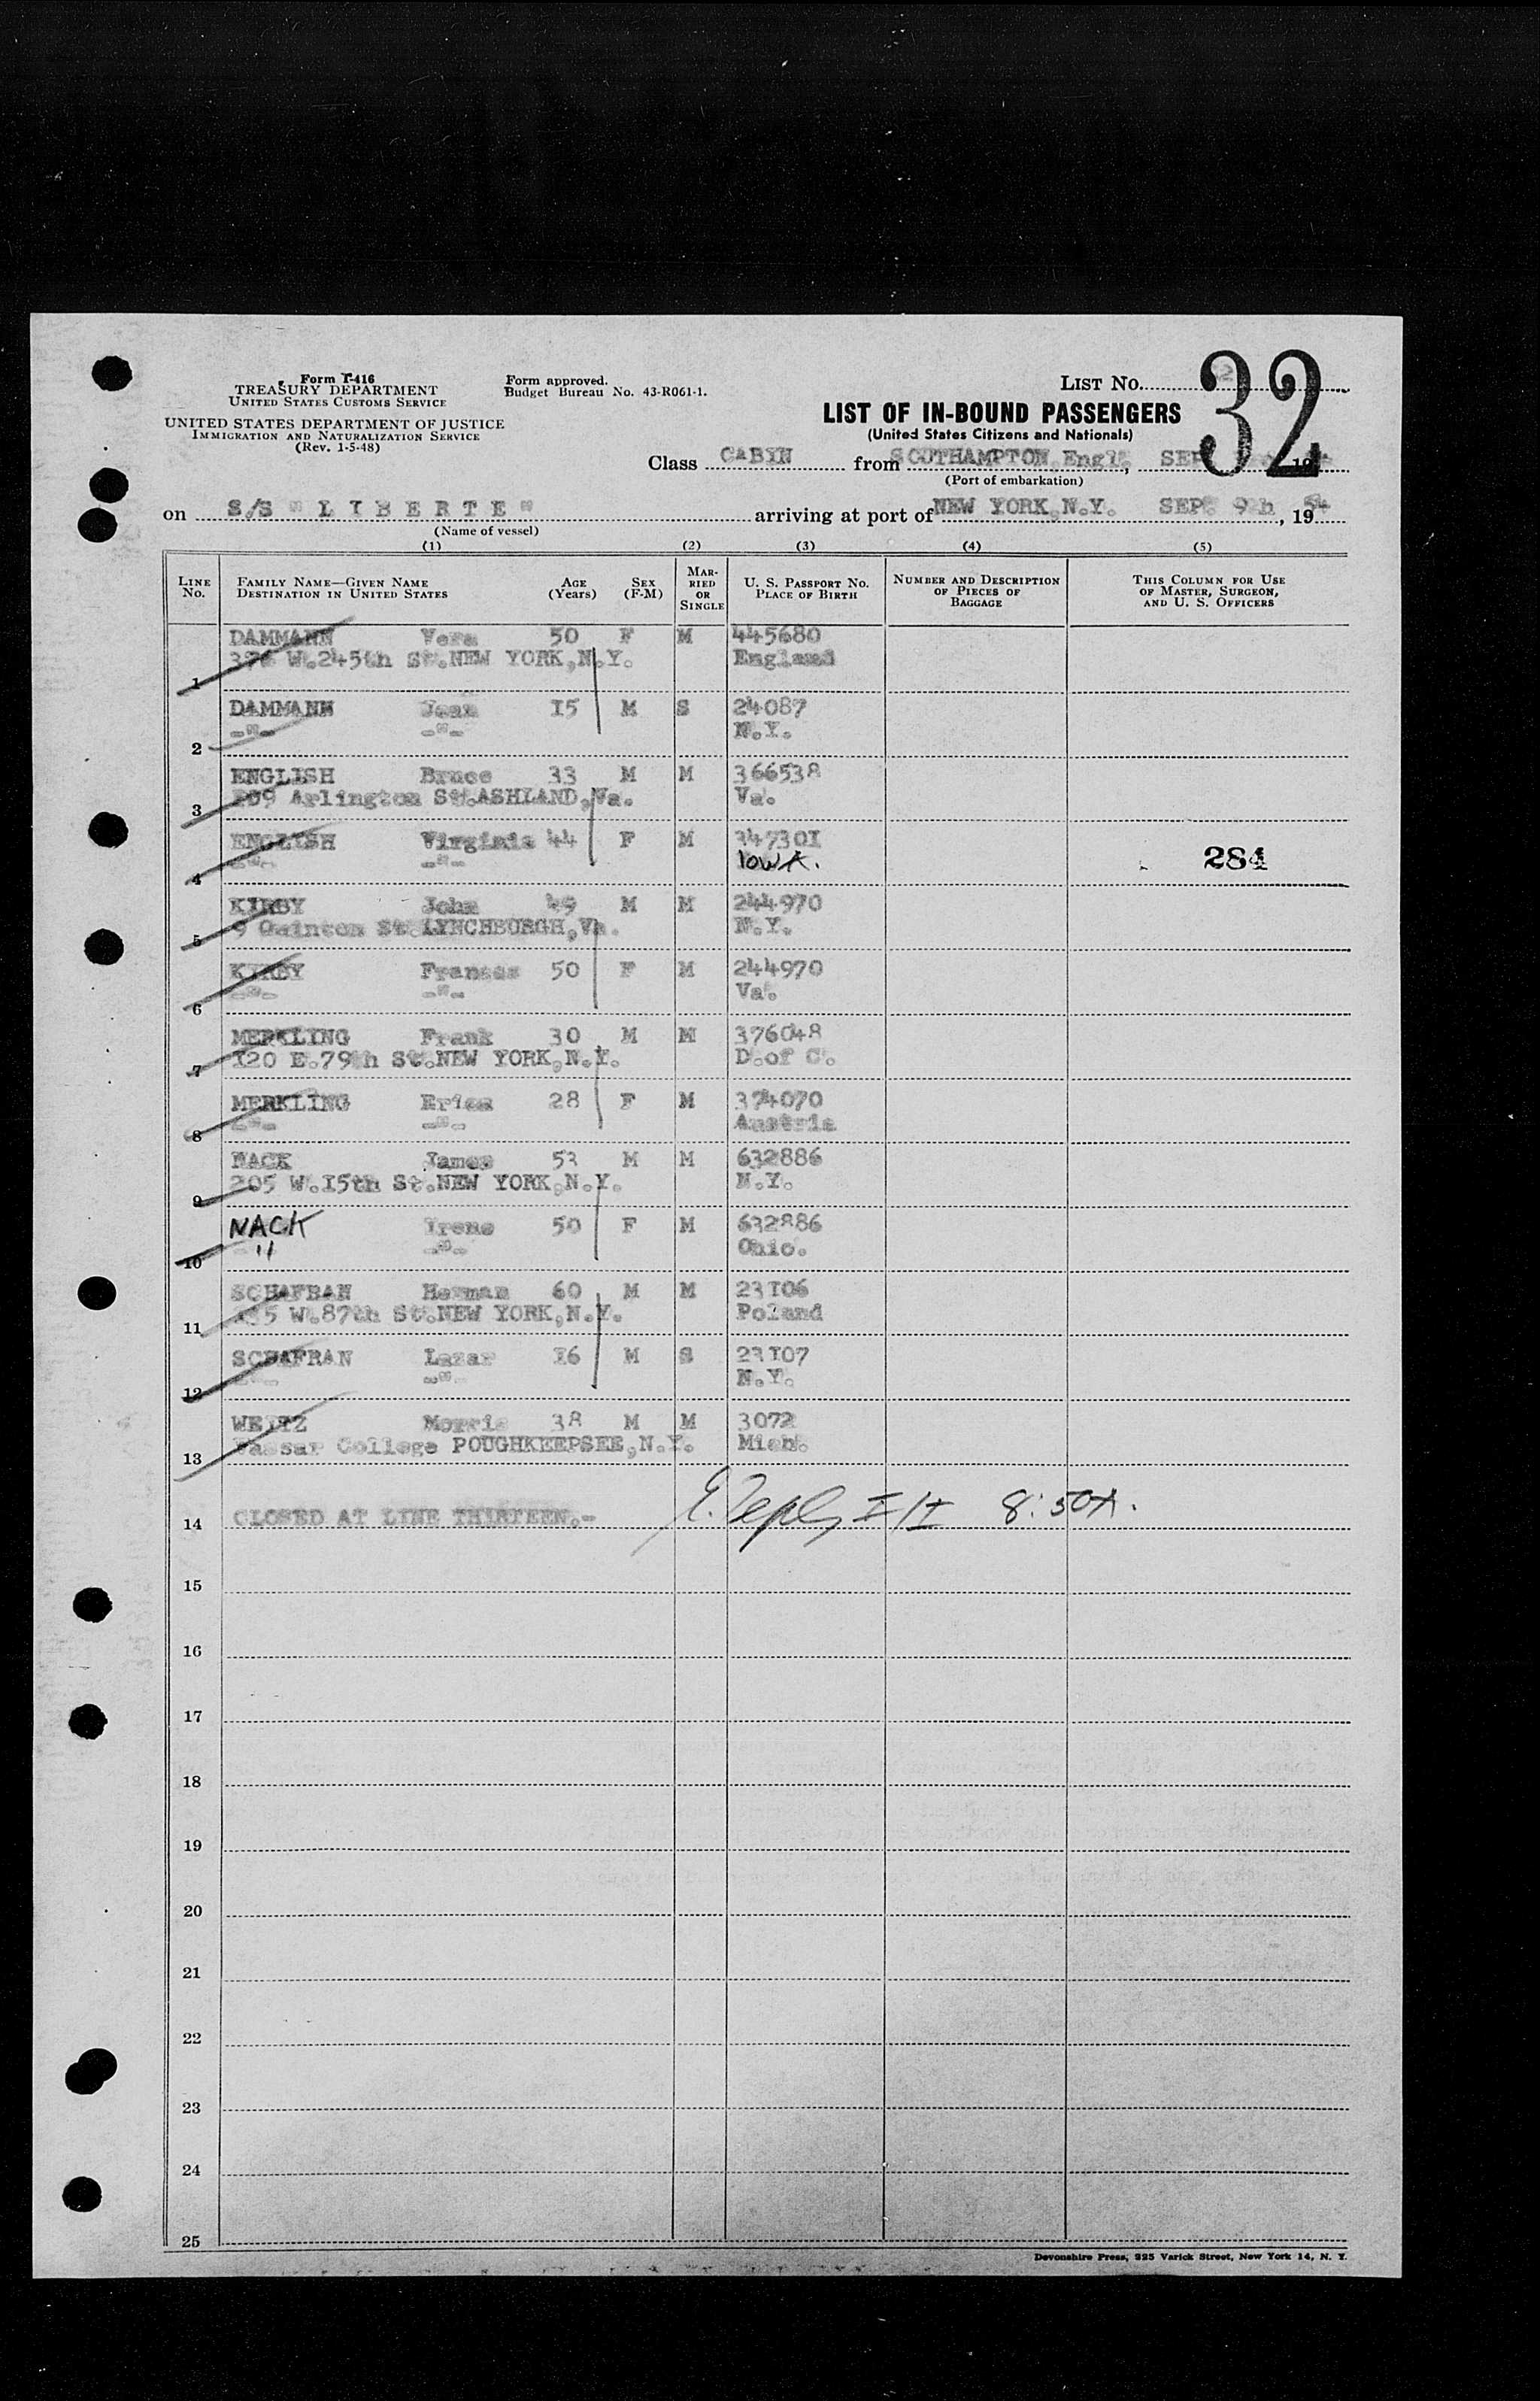 Form I-416
TREASURY DEPARTMENT
UNITED STATES CUSTOMS SERVICE
UNITED STATES DEPARTMENT OF JUSTICE
IMMIGRATION AND NATURALIZATION SERVICE
(Rev. 1-5-48)
Form approved.
Budget Bureau No. 43-R061-1.
LIST NO. 32
LIST OF IN-BOUND PASSENGERS
(United States Citizens and Nationals)
Class CABIN from SOUTHAMPTON,Engl., SEP 19
(Port of embarkation)
on S/S " L I B E R T E " arriving at port of NEW YORK,N.Y. SEP. 9th, 1954
(Name of vessel)
(1) (2) (3) (4) (5)
LINE No. FAMILY NAME—GIVEN NAME DESTINATION IN UNITED STATES AGE (Years) SEX (F-M) MARRIED OR SINGLE U. S. PASSPORT NO. PLACE OF BIRTH NUMBER AND DESCRIPTION OF PIECES OF BAGGAGE THIS COLUMN FOR USE OF MASTER, SURGEON, AND U. S. OFFICERS
DAMMANN Vera 50 F M 445680
1 376 W.245th St.NEW YORK,N.Y. England
DAMMANN Jean 15 M S 24087
2 -"- -"- N.Y.
ENGLISH Bruce 33 M M 366538
3 209 Arlington St.ASHLAND,Va. Va.
ENGLISH Virginia 44 F M 347301
4 -"- -"- IOWA. 284
KIRBY John 49 M M 244970
5 9 Quinton St.LYNCHBURGH,Va. N.Y.
KIRBY Frances 50 F M 244970
6 -"- -"- Va.
MERKLING Frank 30 M M 376048
7 120 E.79th St.NEW YORK,N.Y. D.of C.
MERKLING Erica 28 F M 374070
8 -"- -"- Austria
NACK James 53 M M 632886
9 205 W.15th St.NEW YORK,N.Y. N.Y.
NACK Irene 50 F M 632886
10 " -"- Ohio.
SCHAFRAN Herman 60 M M 23106
11 135 W.87th St.NEW YORK,N.Y. Poland
SCHAFRAN Lazar 16 M S 23107
12 -"- -"- N.Y.
WEITZ Morris 38 M M 3072
13 Vassar College POUGHKEEPSEE,N.Y. Mich.
14 CLOSED AT LINE THIRTEEN.- I/I 8:50A.
15
16
17
18
19
20
21
22
23
24
25
Devonshire Press, 225 Varick Street, New York 14, N. Y.